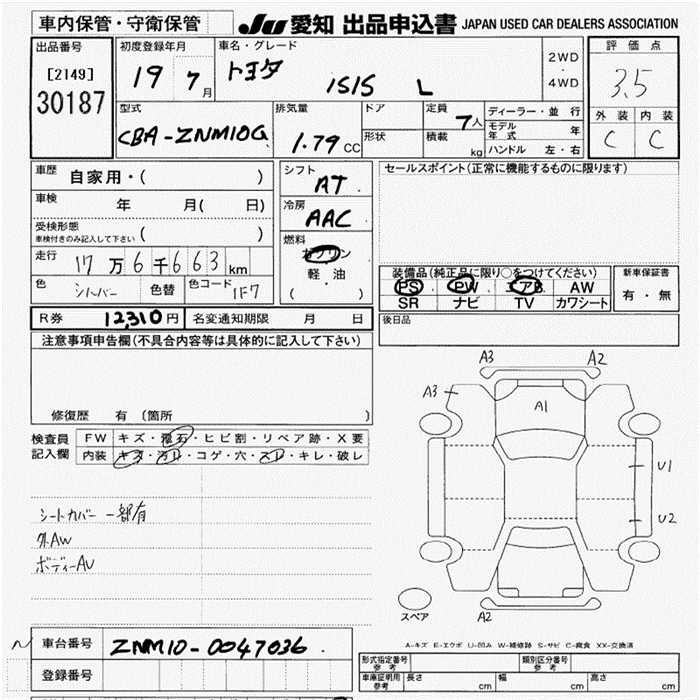 車内保管・守衛保管
JU 愛知 出品申込書 JAPAN USED CAR DEALERS ASSOCIATION
出品番号
[2149]
30187
初度登録年月
19 7月
車名・グレード
トヨタ ISIS L
2WD
・
4WD
評価点
3.5
外装 内装
C C
型式
CBA-ZNM10G
排気量
1.79 CC
ドア
形状
定員
7人
積載
kg
ディーラー・並行
モデル年式 年
ハンドル 左・右
車歴 自家用・( )
車検 年 月( 日)
受検形態
車検付きのみ記入して下さい ( )
走行 17万6千663km
色 シルバー 色替 色コード 1F7
シフト
AT
冷房
AAC
燃料
ガソリン
軽・油
( )
セールスポイント(正常に機能するものに限ります)
装備品(純正品に限り○をつけてください)
PS PW エアB AW
SR ナビ TV カワシート
新車保証書
有・無
R券 12,310円 名変通知期限 月 日
後日品
注意事項申告欄(不具合内容等は具体的に記入して下さい)
修復歴 有 (箇所 )
検査員
記入欄
FW キズ・飛石・ヒビ割・リペア跡・X要
内装 キズ・汚レ・コゲ・穴・スレ・キレ・破レ
シートカバー 一部有
外AW
ボディーAU
A3 A2
A3
A1
U1
U2
スペア
A2
A-キズ E-エクボ U-凹み W-補修跡 S-サビ C-腐食 XX-交換済
車台番号 ZNM10-0047036
登録番号
形式指定番号
参考
類別区分番号
参考
車庫証明用
参考
長さ cm 幅 cm 高さ cm